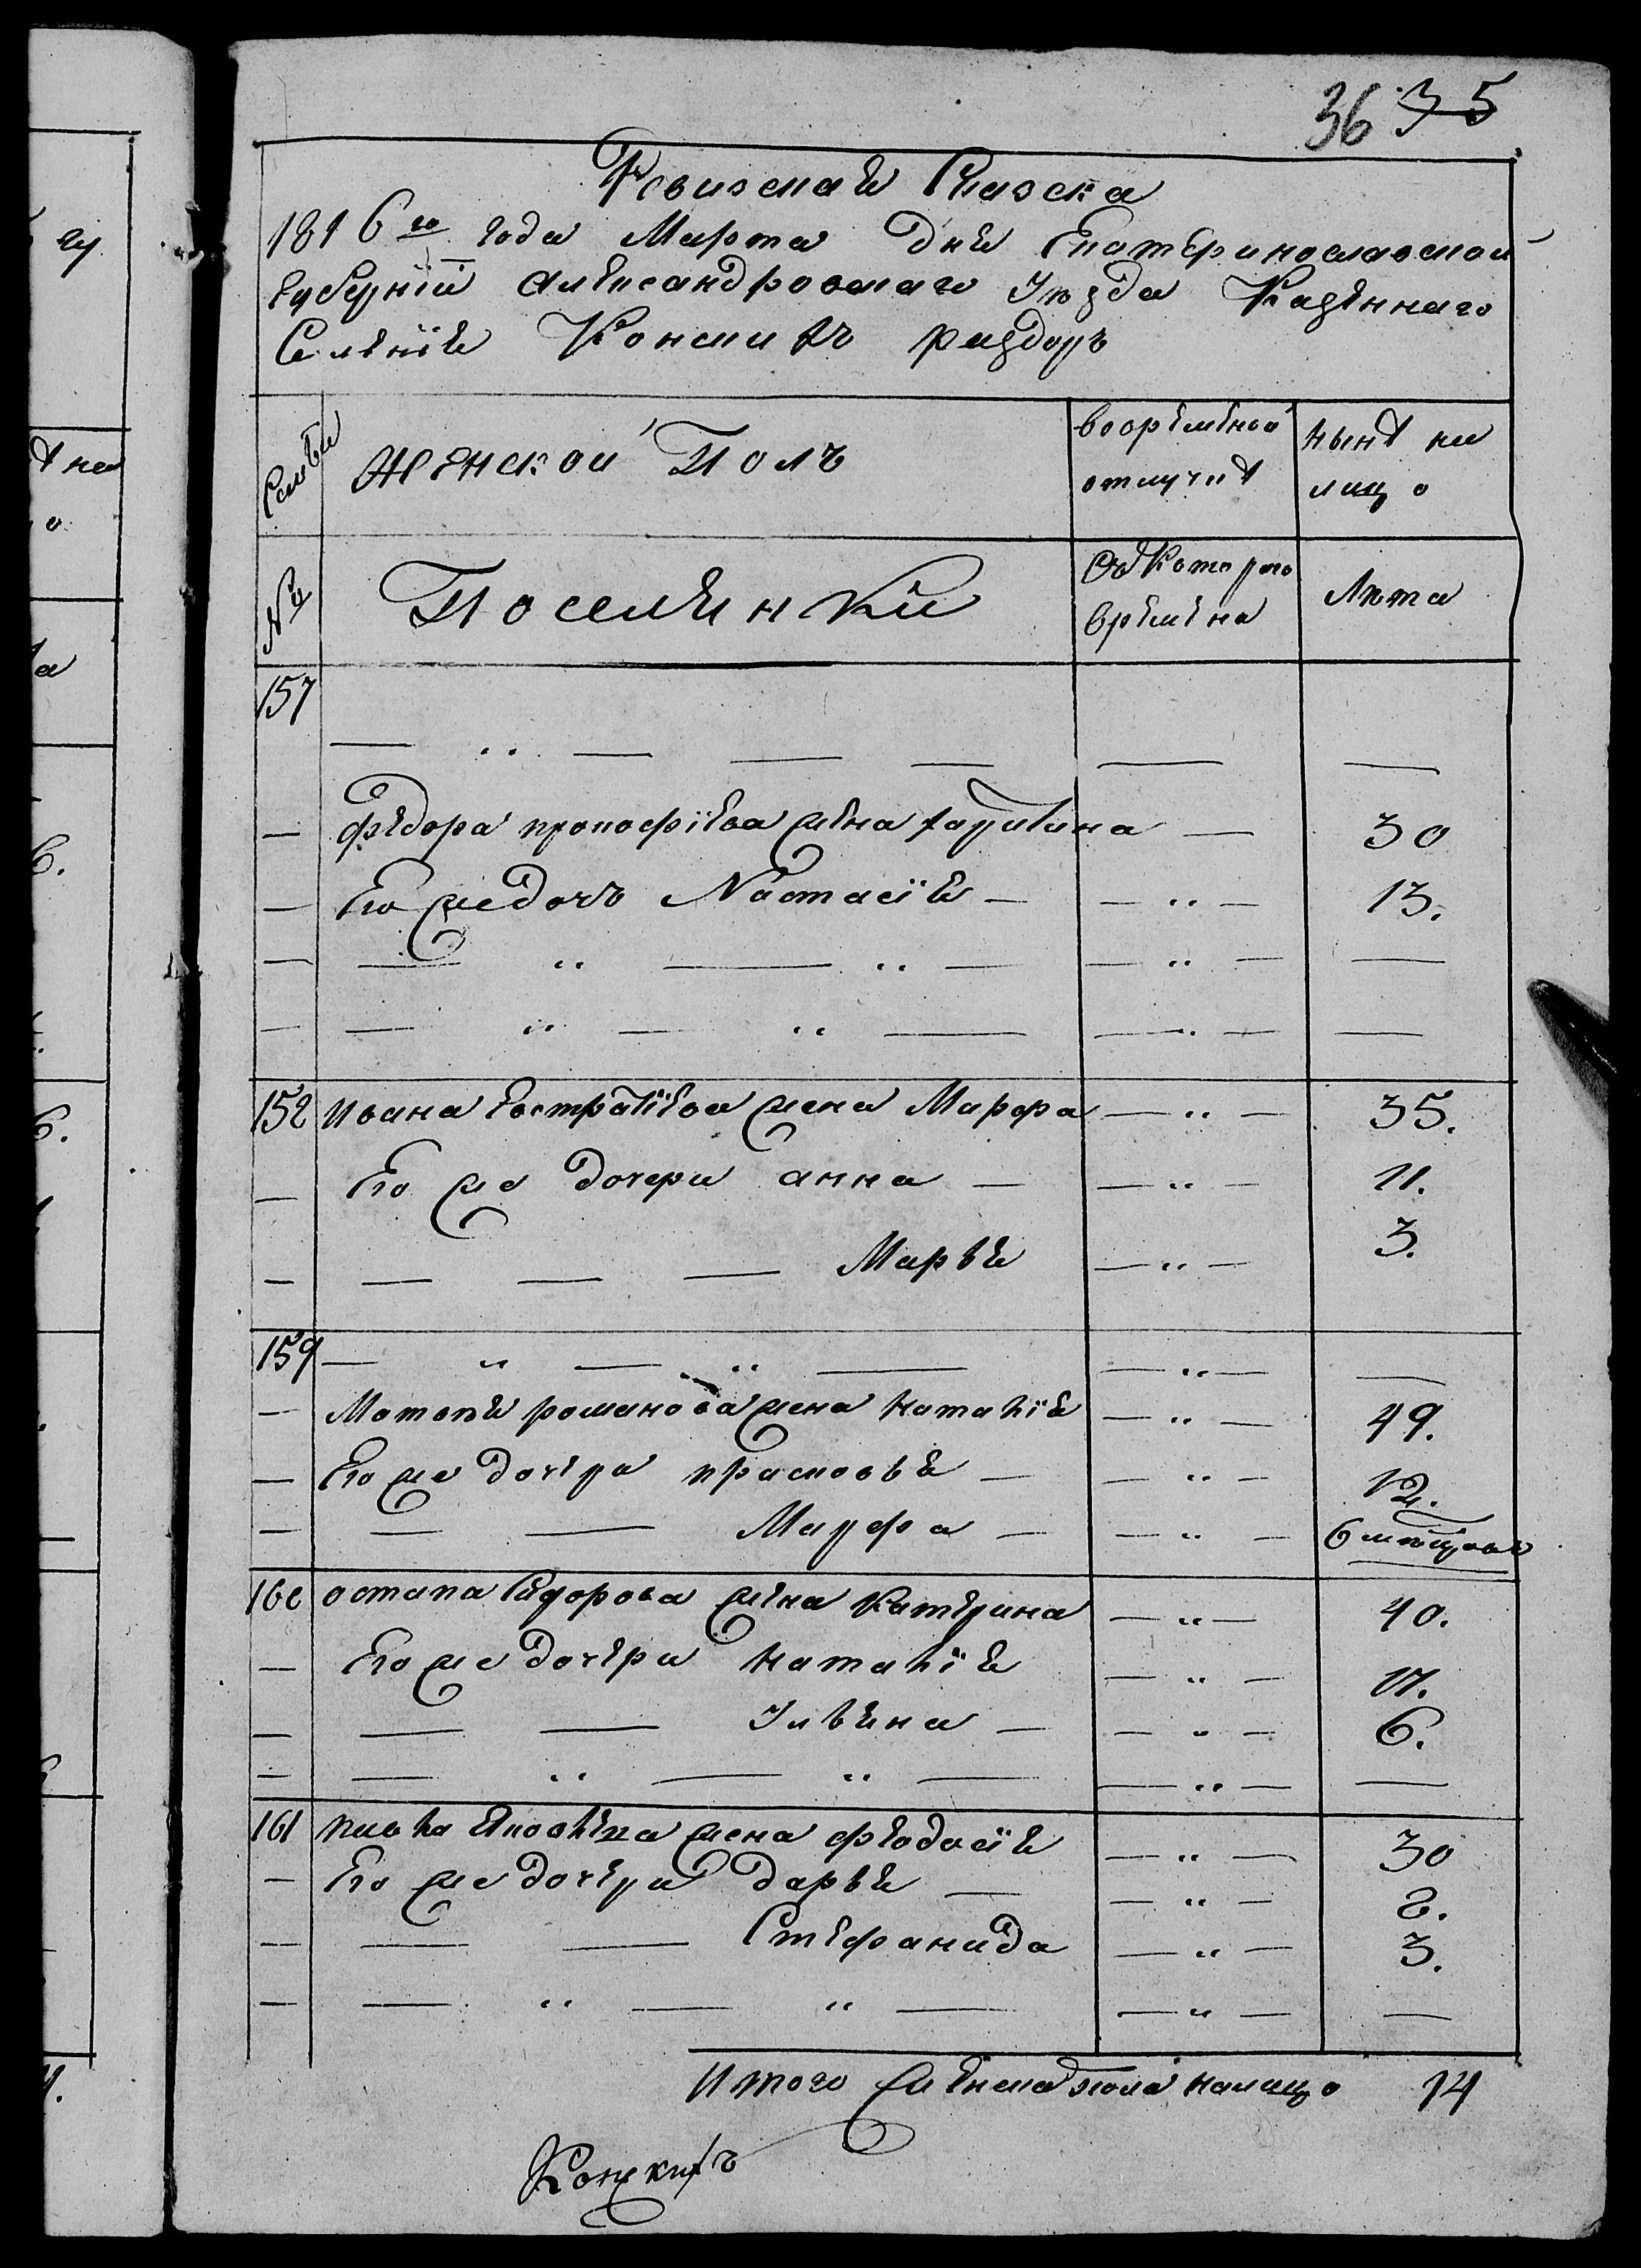 36 35
Ревизская Сказка
1816го года Марта дня Екатеринославской
Губернии Александровскаго уезда Казеннаго
Селения Конских раздоръ
Семьи
женской Полъ
во временной отлучке
ныне на лицо
№
Поселянки
Съ Котораго времена
Лета
157
— „ — — — — —
— Федора прокофиева жена — 30
— Его же дочь Настасия — — „ — 13.
— — „ — „ — — „ — —
— — „ — „ — — „ — —
158 Ивана Евстратиева жена Марфа — „ — 35.
— Его же дочери анна — — „ — 11.
— — — — Марья — „ — 3.
159 — „ — „ — — „ — —
— Мотвея романова жена Наталия — „ — 49.
— Его же дочери прасковья — — „ — 12.
— — — Марфа — — „ — 6 месяцовъ
160 остапа Сидорова жена Катерина — „ — 40.
— Его же дочери Наталия — „ — 17.
— — — Ульяна — — „ — 6.
— — „ — „ — — „ — —
161 Яковлева жена феодосия — „ — 30
— Его же дочери Дарья — — „ — 8.
— — — Стефанида — „ — 3.
— — „ — „ — — „ — —
Итого женска пола налицо 14
Конскихъ